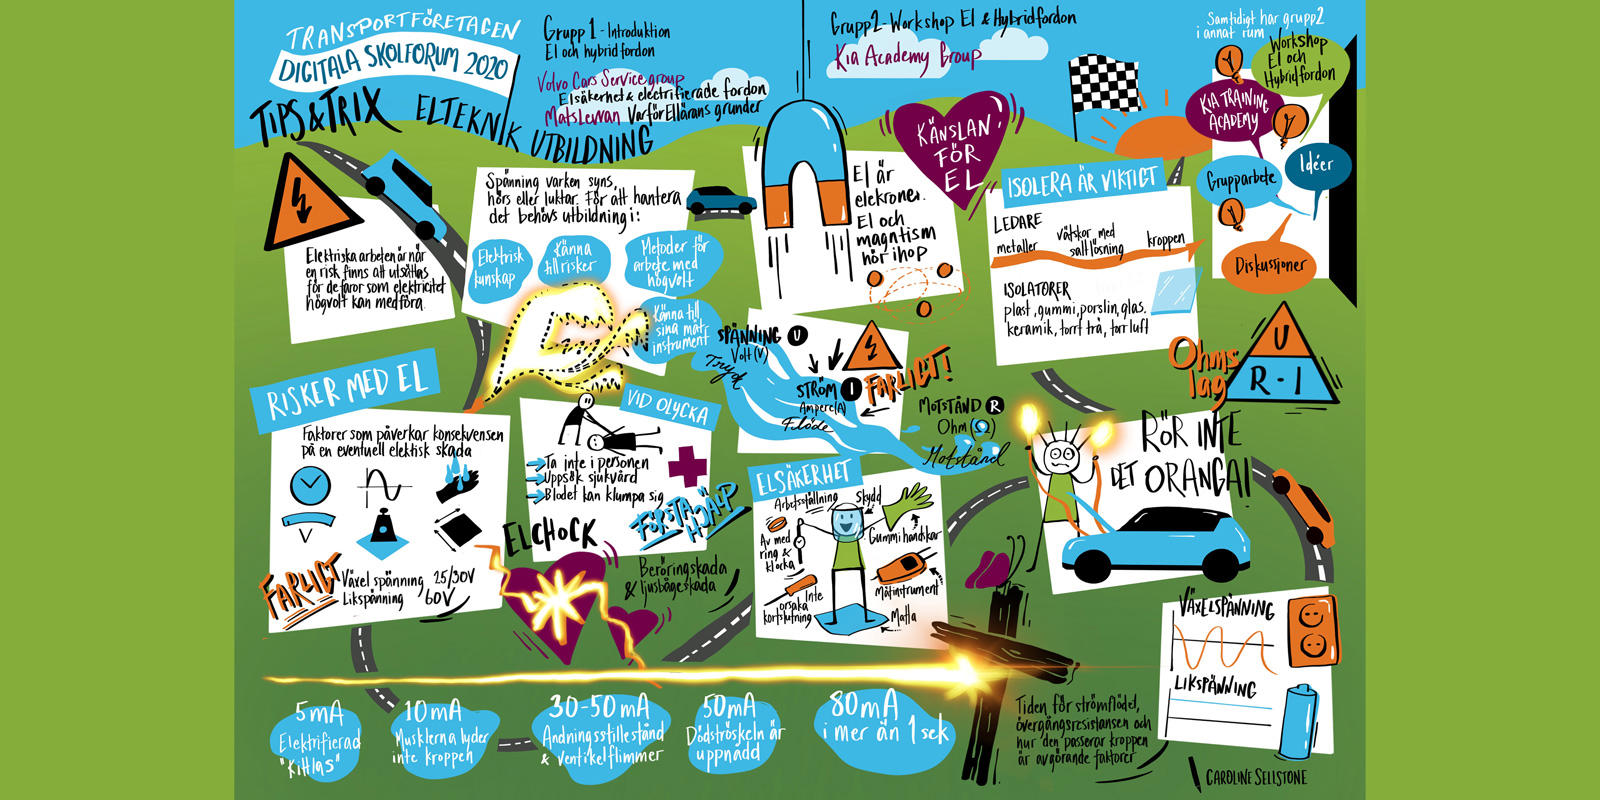 TRANSPORTFÖRETAGEN
DIGITALA SKOLFORUM 2020
TIPS & TRIX ELTEKNIK UTBILDNING
Grupp 1 - Introduktion
El och hybridfordon
Volvo Cars Service group
Elsäkerhet & electrifierade fordon
Mats Lewan Varför Ellärans grunder
Grupp 2 - Workshop El & Hybridfordon
Kia Academy Group
Samtidigt har grupp2
i annat rum
Workshop
El och
Hybridfordon
KIA TRAINING
ACADEMY
Idéer
Grupparbete
Diskussioner
Elektriska arbeten är när
en risk finns att utsättas
för de faror som elektricitet
högvolt kan medföra.
Spänning varken syns,
hörs eller luktar. För att hantera
det behövs utbildning i:
Elektrisk
kunskap
Känna
till risker
Metoder för
arbete med
högvolt
Känna till
sina mät-
instrument
El är
elekroner.
El och
magntism
hör ihop
KÄNSLAN
FÖR
EL
ISOLERA ÄR VIKTIGT
LEDARE
metaller
vätskor med
saltlösning
kroppen
ISOLATORER
plast, gummi, porslin, glas.
keramik, torrt trä, torr luft
SPÄNNING U
Volt (V)
Tryck
STRÖM I
Ampere (A)
Flöde
FARLIGT!
MOTSTÅND R
Ohm (Ω)
Motstånd
Ohms
lag
U
R · I
RISKER MED EL
Faktorer som påverkar konsekvensen
på en eventuell elektisk skada
V
FARLIGT
Växel spänning 25/30V
Likspänning 60V
VID OLYCKA
Ta inte i personen
Uppsök sjukvård
Blodet kan klumpa sig
FÖRSTA
HJÄLP
ELCHOCK
Beröringskada
& ljusbågeskada
ELSÄKERHET
Arbetsställning
Skydd
Av med
ring &
klocka
Gummihandskar
Inte
orsaka
kortslutning
Mätinstrument
Matta
RÖR INTE
DET ORANGA!
VÄXELSPÄNNING
LIKSPÄNNING
5mA
Elektrifierad
"Kittlas"
10mA
Musklerna lyder
inte kroppen
30-50mA
Andningsstillestånd
& Ventikelflimmer
50mA
Dödströskeln är
uppnådd
80mA
i mer än 1 sek
Tiden för strömflödet,
övergångsresistansen och
hur den passerar kroppen
är avgörande faktorer
CAROLINE SELLSTONE